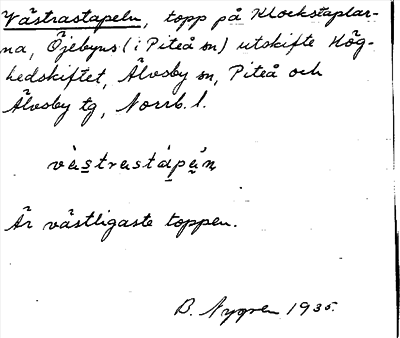 Västrastapeln, topp på Klockstaplar-
na, Öjebyns (i Piteå sn) utskifte Hög-
hedskiftet, Älvsby sn, Piteå och
Älvsby tg, Norrb. l.
vàstrastápән
Är västligaste toppen.
B. Nygren 1935.